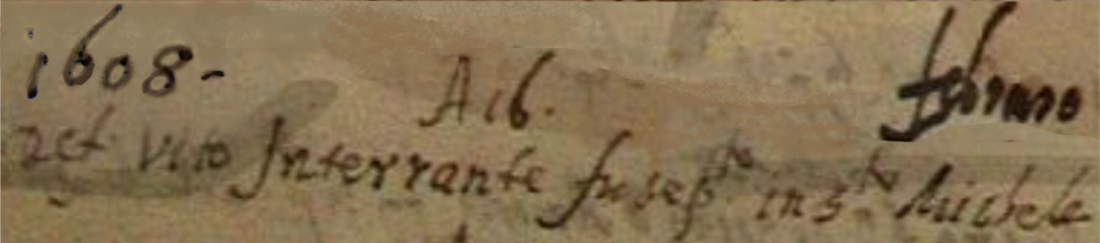 1608- A 16. febraro
Vito Interrante fu septo in sto Michele